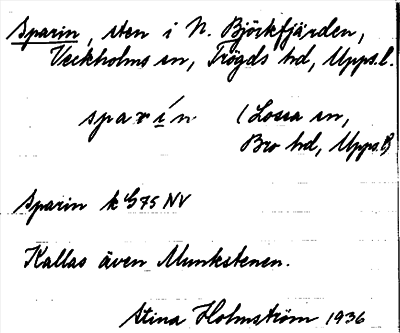 Sparin, sten i N. Björkfjärden,
Veckholms sn, Trögds hd, Upps.l.
sparín (Lossa sn,
Bro hd, Upps.l)
Sparin k G75 NV
Kallas även Munkstenen.
Stina Holmström 1936